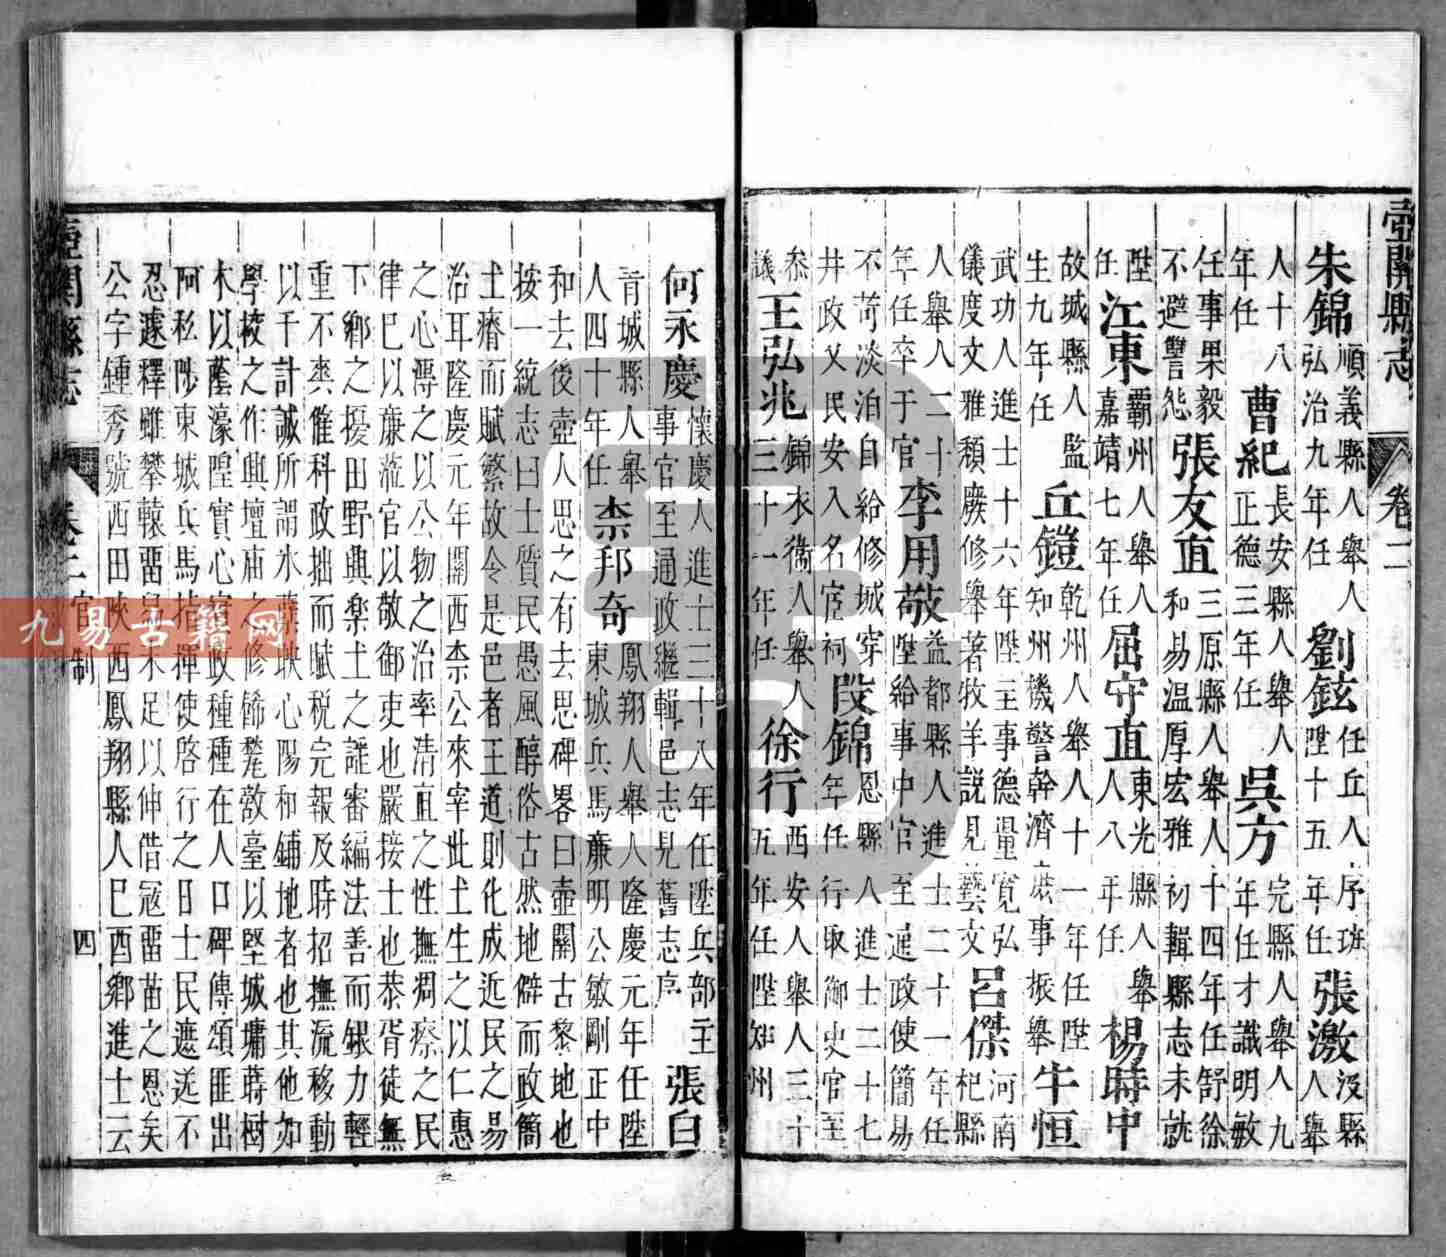 壺關縣志 卷二
朱錦 順義縣人舉人 弘治九年任 劉鉉 任丘人序班 陞十五年任 張激 汲縣 人舉
人十八 年任 曹紀 長安縣人舉人 正德三年任 吳方 完縣人舉人九 年任才識明敏
任事果毅 不避讐怨 張友直 三原縣人舉人十四年任舒徐 和易溫厚宏雅初輯縣志未就
陞 任 江東 霸州人舉人 嘉靖七年任 屈守直 東光縣人舉 人八年任 楊時中
故城縣人監 生九年任 丘鎧 乾州人舉人十一年任陞 知州機警幹濟庶事振舉 牛恒
武功人進士十六年陞主事德量寬弘 儀度文雅頹廢修舉著牧羊説見藝文 呂傑 河南 杞縣
人舉人二十 年任卒于官 李用敬 益都縣人進士二十一年任 陞給事中官至通政使簡易
不苛淡泊自給修城穿 井政乂民安入名宦祠 段錦 恩縣人進士二十七 年任行取御史官至
叅 議 王弘兆 錦衣衞人舉人 三十一年任 徐行 西安人舉人三十 五年任陞知州
何永慶 懷慶人進士三十八年任陞兵部主 事官至通政纂輯邑志見舊志序 張白
青城縣人舉 人四十年任 李邦奇 鳳翔人舉人隆慶元年任陞 東城兵馬廉明公敏剛正中
和去後壺人思之有去思碑畧曰壺關古黎地也
按一統志曰士質民愚風醇俗古然地僻而政簡
土瘠而賦繁故令是邑者王道則化成近民之易
治耳隆慶元年關西李公來宰此土生之以仁惠
之心漙之以公物之治率清直之性撫凋瘵之民
律巳以廉蒞官以敬御吏也嚴接士也恭胥徒無
下鄉之擾田野興樂土之謠審編法善而銀力輕
重不爽催科政拙而賦税完報及時招撫流移動
以千計誠所謂氷蘗映心陽和鋪地者也其他如
學校之作興壇庙之修餙甃敵臺以堅城墉蒔樹
木以蔭濠隍實心實政種種在人口碑傳頌匪出
阿私陟東城兵馬指揮使啓行之日士民遮送不
忍遽釋雖攀轅畱舄未足以伸借冦畱苗之恩矣
公字鍾秀號西田陝西鳳翔縣人巳酉鄉進士云
壺關縣志 卷二 官制 四
九易古籍网